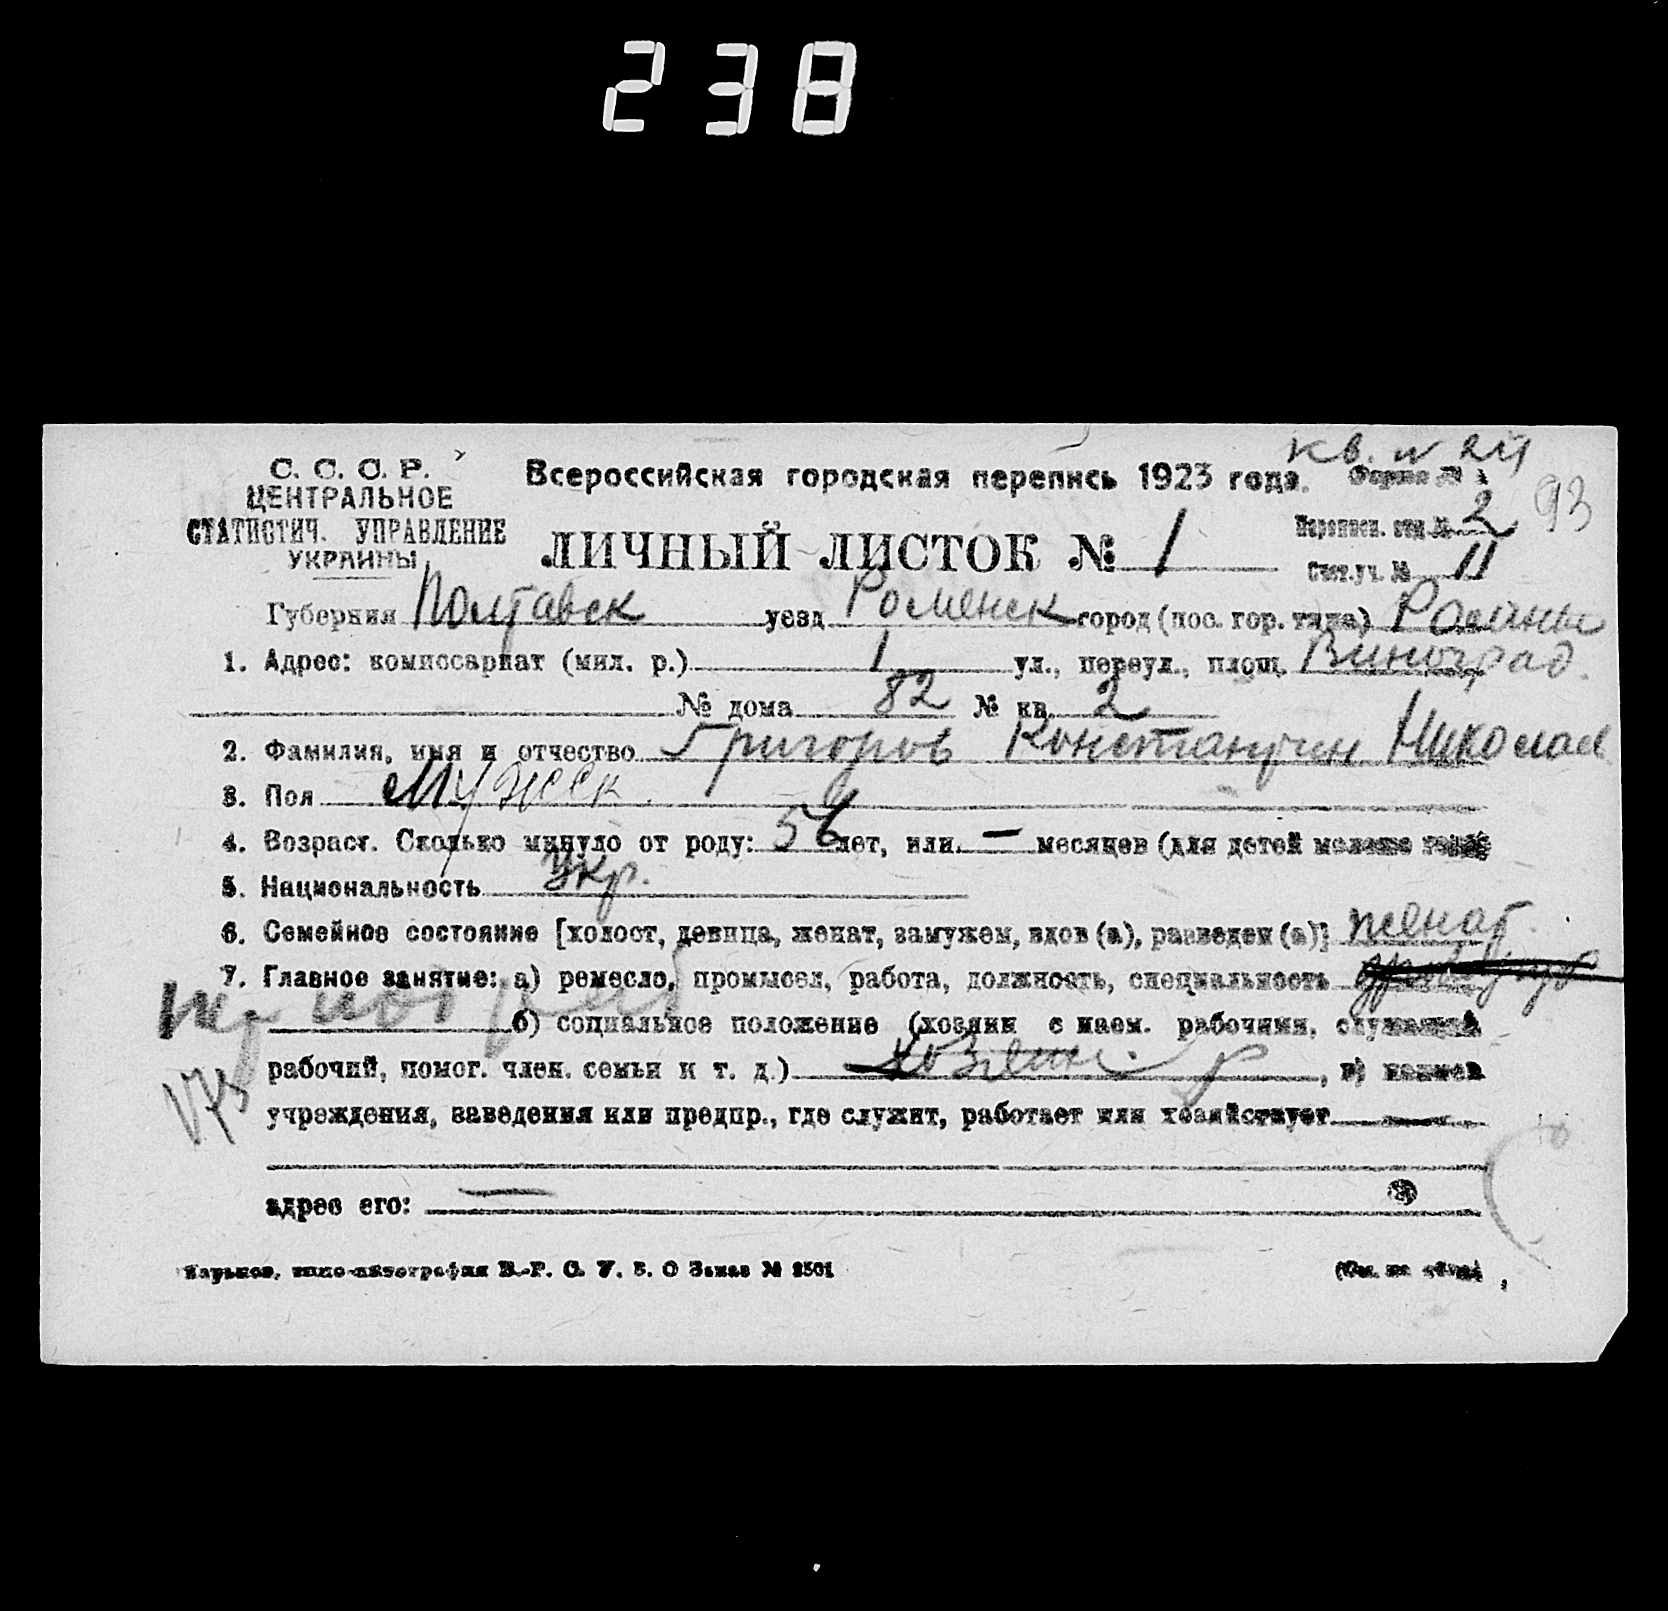 238
кв. № 211
С. С. С. Р.
ЦЕНТРАЛЬНОЕ
СТАТИСТИЧ. УПРАВЛЕНИЕ
УКРАИНЫ
Всероссийская городская перепись 1923 года. Форма №
93
ЛИЧНЫЙ ЛИСТОК № 1
Переписн. отд. № 2
Счет. уч. № 11
Губерния Полтавск уезд Роменск город (пос. гор. типа) Ромны
1. Адрес: комиссариат (мил. р.) 1 ул., переул., площ. Виноград.
№ дома 82 № кв. 2
2. Фамилия, имя и отчество Григоров Константин Николаев
3. Пол Мужеск.
4. Возраст. Сколько минуло от роду: 56 лет, или — месяцев (для детей моложе года)
5. Национальность Укр.
6. Семейное состояние [холост, девица, женат, замужем, вдов (а), разведен (а)] женат.
7. Главное занятие: а) ремесло, промысел, работа, должность, специальность
б) социальное положение (хозяин с наем. рабочими, служащий
рабочий, помог. член. семьи и т. д.) хозяин. , в) наимен
учреждения, заведения или предпр., где служит, работает или хозяйствует —
адрес его: —
Харьков, типо-литография В.-Р. С. У. В. О Заказ № 2501
(См. на обор.)